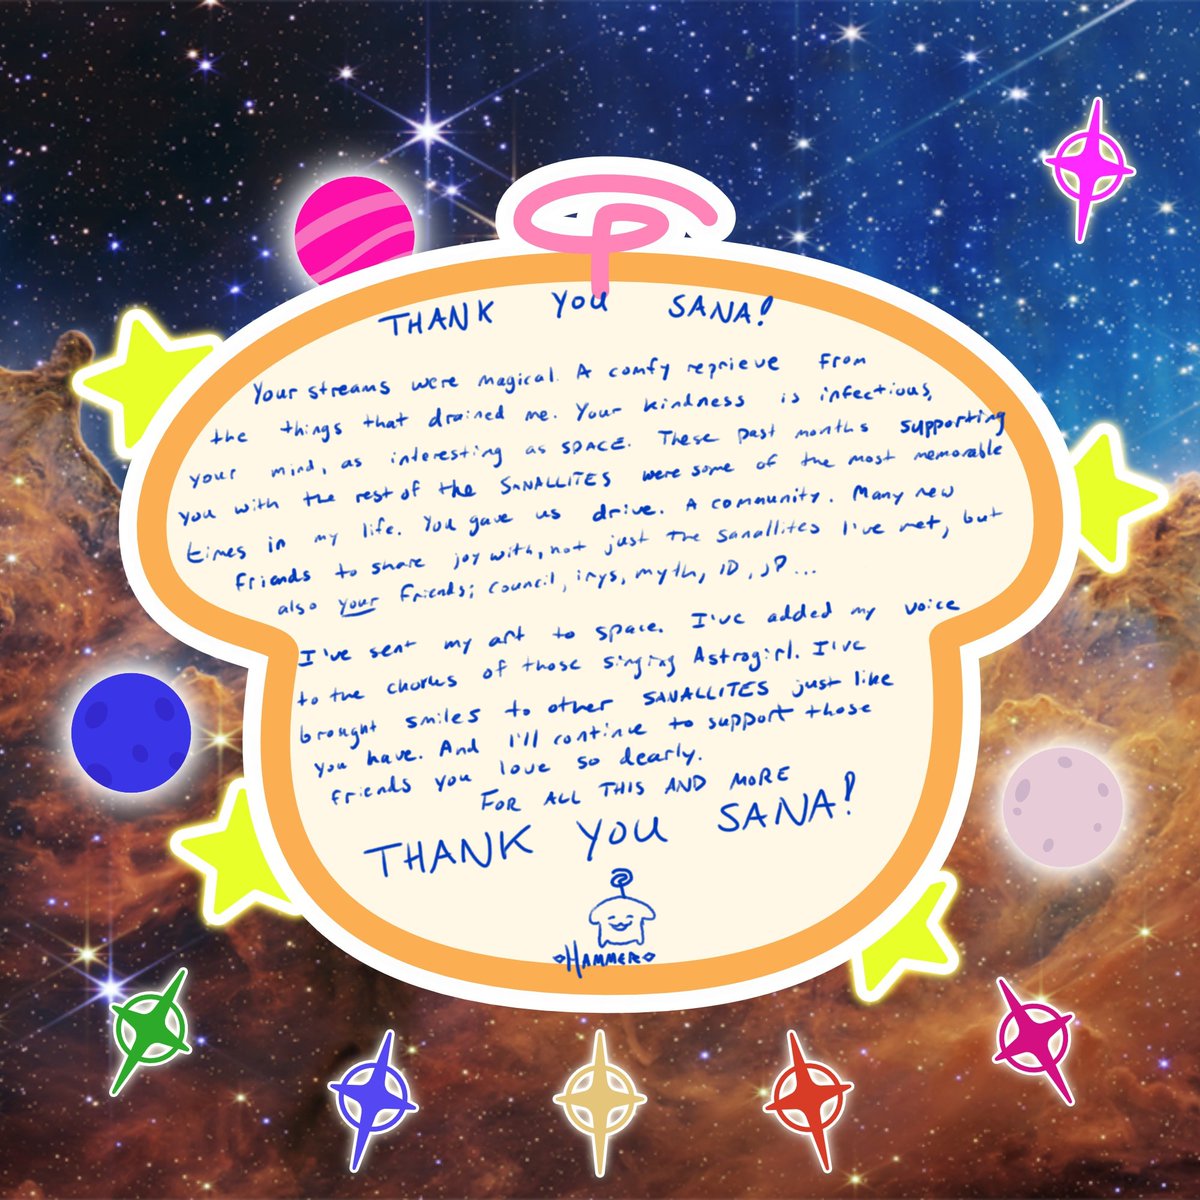 THANK YOU SANA!
Your streams were magical. A comfy reprieve from
the things that drained me. Your kindness is infectious,
your mind, as interesting as SPACE. These past months supporting
you with the rest of the SANALLITES were some of the most memorable
times in my life. You gave us drive. A community. Many new
friends to share joy with, not just the sanallites I've met, but
also your friends; council, irys, myth, ID, JP...
I've sent my art to space. I've added my voice
to the chorus of those singing Astrogirl. I've
brought smiles to other SANALLITES just like
you have. And I'll continue to support those
friends you love so dearly.
FOR ALL THIS AND MORE
THANK YOU SANA!
HAMMER